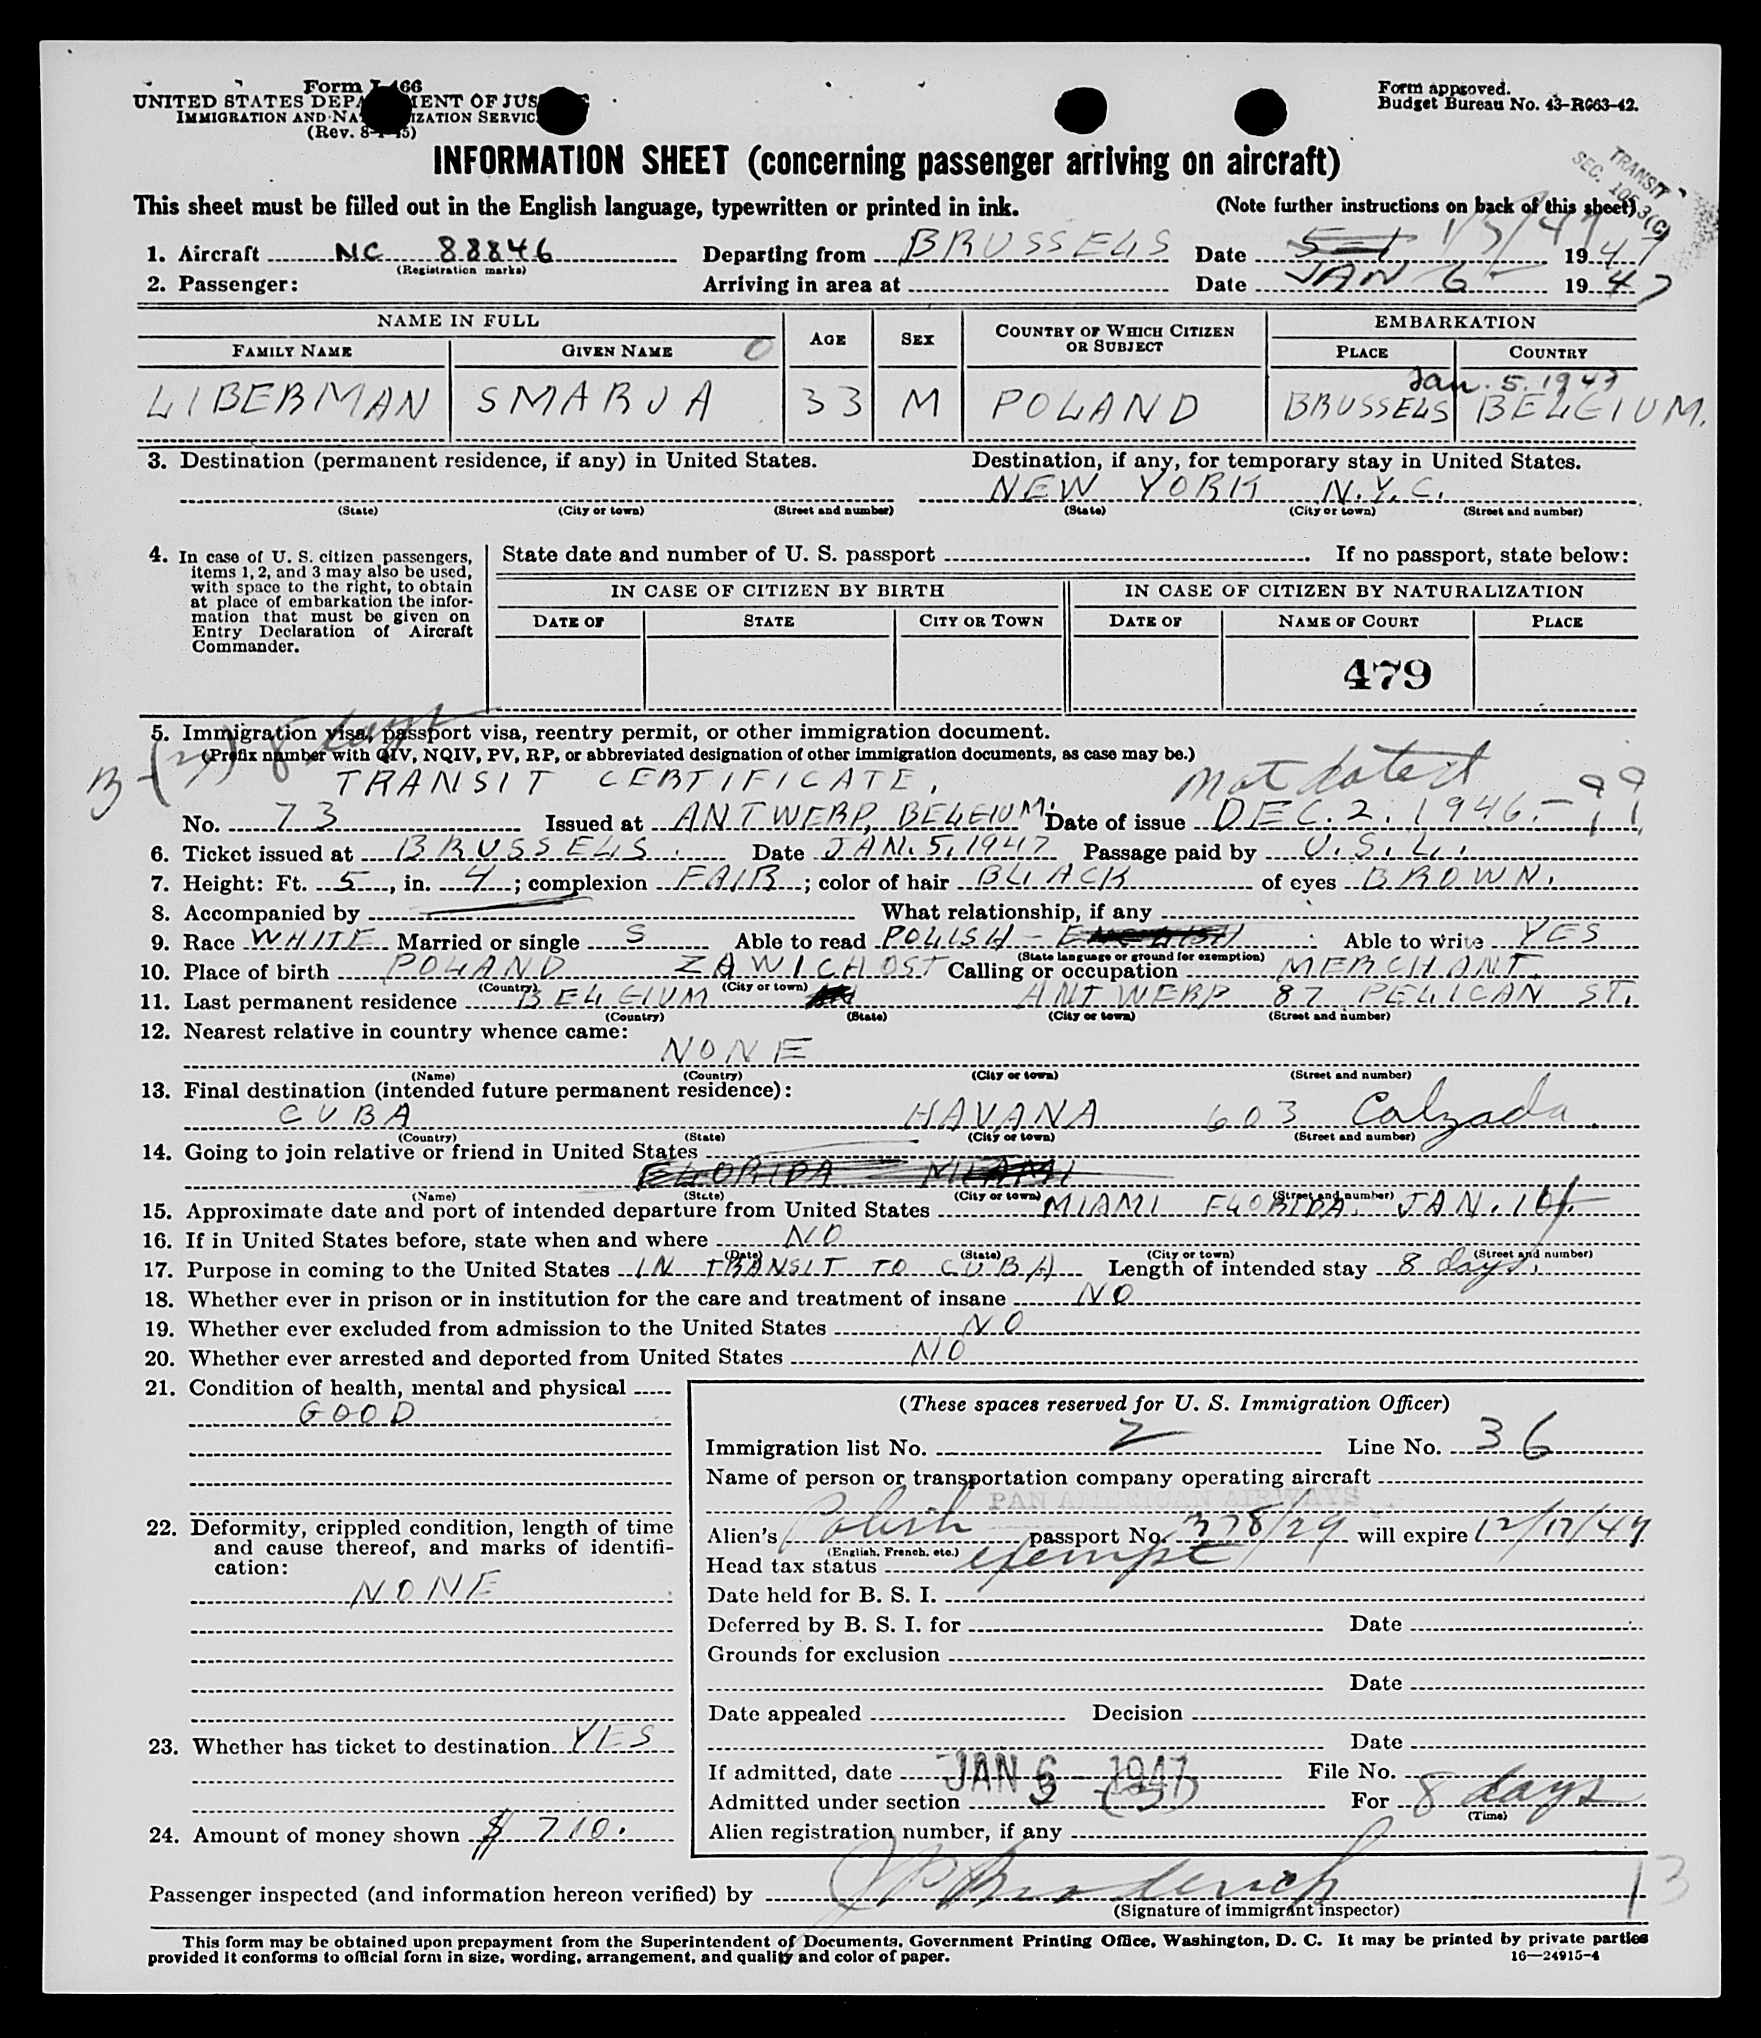 Form I-466
UNITED STATES DEPARTMENT OF JUSTICE
IMMIGRATION AND NATURALIZATION SERVICE
(Rev. 8-1-45)
Form approved.
Budget Bureau No. 43-R063-42.
INFORMATION SHEET (concerning passenger arriving on aircraft)
TRANSIT
SEC. 103.3(C)
This sheet must be filled out in the English language, typewritten or printed in ink. (Note further instructions on back of this sheet)
1. Aircraft NC 88846 Departing from BRUSSELS Date 5-1 1/5/47 1947
(Registration marks)
2. Passenger: Arriving in area at Date JAN 6 1947
NAME IN FULL AGE SEX COUNTRY OF WHICH CITIZEN OR SUBJECT EMBARKATION
FAMILY NAME GIVEN NAME PLACE COUNTRY
Jan. 5. 1947
LIBERMAN SMARJA 33 M POLAND BRUSSELS BELGIUM.
3. Destination (permanent residence, if any) in United States. Destination, if any, for temporary stay in United States.
NEW YORK N.Y.C.
(State) (City or town) (Street and number) (State) (City or town) (Street and number)
4. In case of U. S. citizen passengers, items 1, 2, and 3 may also be used, with space to the right, to obtain at place of embarkation the information that must be given on Entry Declaration of Aircraft Commander.
State date and number of U. S. passport If no passport, state below:
IN CASE OF CITIZEN BY BIRTH IN CASE OF CITIZEN BY NATURALIZATION
DATE OF STATE CITY OR TOWN DATE OF NAME OF COURT PLACE
479
5. Immigration visa, passport visa, reentry permit, or other immigration document.
(Prefix number with QIV, NQIV, PV, RP, or abbreviated designation of other immigration documents, as case may be.)
8 days
TRANSIT CERTIFICATE. Not dated
No. 73 Issued at ANTWERP, BELGIUM. Date of issue DEC. 2. 1946.
6. Ticket issued at BRUSSELS. Date JAN. 5. 1947 Passage paid by U.S.L.
7. Height: Ft. 5, in. 4; complexion FAIR; color of hair BLACK of eyes BROWN.
8. Accompanied by What relationship, if any
9. Race WHITE Married or single S Able to read POLISH - ENGLISH Able to write YES
(State language or ground for exemption)
10. Place of birth POLAND ZAWICHOST Calling or occupation MERCHANT.
(Country) (City or town)
11. Last permanent residence BELGIUM ANTWERP 87 PELICAN ST.
(Country) (State) (City or town) (Street and number)
12. Nearest relative in country whence came:
NONE
(Name) (Country) (City or town) (Street and number)
13. Final destination (intended future permanent residence):
CUBA HAVANA 603 Calzada
(Country) (State) (City or town) (Street and number)
14. Going to join relative or friend in United States
FLORIDA MIAMI
(Name) (State) (City or town) (Street and number)
15. Approximate date and port of intended departure from United States MIAMI FLORIDA. JAN.
16. If in United States before, state when and where NO
(Date) (State) (City or town) (Street and number)
17. Purpose in coming to the United States IN TRANSIT TO CUBA Length of intended stay 8 days.
18. Whether ever in prison or in institution for the care and treatment of insane NO
19. Whether ever excluded from admission to the United States NO
20. Whether ever arrested and deported from United States NO
21. Condition of health, mental and physical
GOOD
22. Deformity, crippled condition, length of time and cause thereof, and marks of identification:
NONE
23. Whether has ticket to destination YES
24. Amount of money shown $ 710.
(These spaces reserved for U. S. Immigration Officer)
Immigration list No. 2 Line No. 36
Name of person or transportation company operating aircraft
PAN AMERICAN AIRWAYS
Alien's Polish passport No. 378/29 will expire 12/17/47
(English, French, etc.)
Head tax status exempt
Date held for B. S. I.
Deferred by B. S. I. for Date
Grounds for exclusion
Date
Date appealed Decision
Date
If admitted, date JAN 6 - 1947 File No.
Admitted under section 3 (3) For 8 days
(Time)
Alien registration number, if any
Passenger inspected (and information hereon verified) by J P Broderick 13
(Signature of immigrant inspector)
This form may be obtained upon prepayment from the Superintendent of Documents, Government Printing Office, Washington, D. C. It may be printed by private parties
provided it conforms to official form in size, wording, arrangement, and quality and color of paper. 16—24915-4